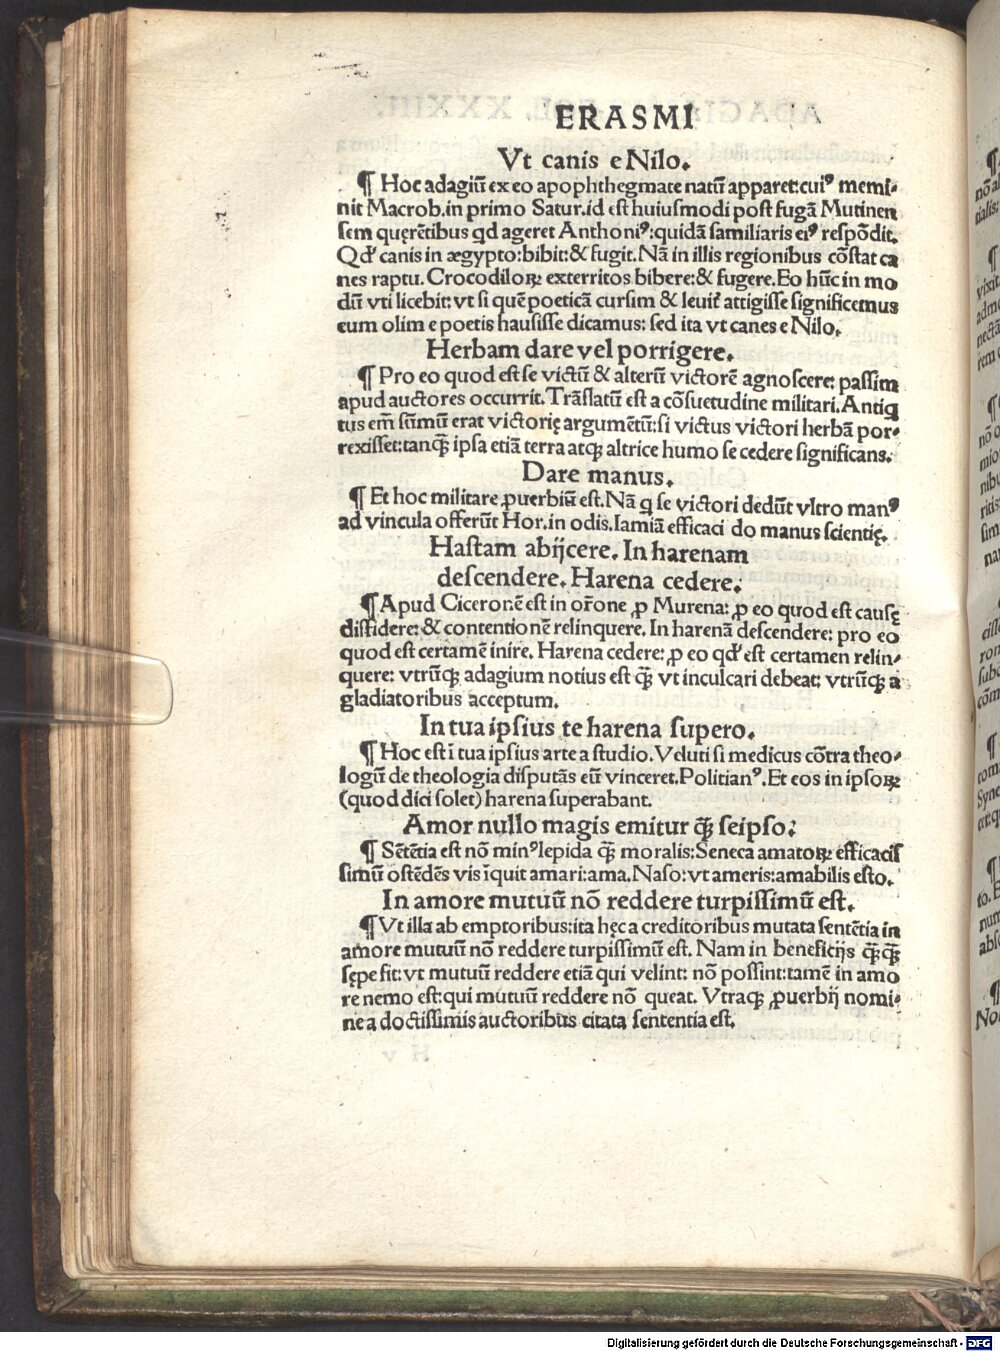 ERASMI
Vt canis e Nilo.
¶ Hoc adagiū ex eo apophthegmate natū apparet:cuiꝰ memi-
nit Macrob.in primo Satur.id est huiusmodi post fugā Mutinen
sem querētibus qd ageret Anthoniꝰ:quidā familiaris eiꝰ respōdit.
Qđ canis in ægypto:bibit:& fugit. Nā in illis regionibus cōstat ca
nes raptu. Crocodiloꝝ exterritos bibere:& fugere. Eo hūc in mo
dū vti licebit: vt si quē poeticā cursim & leuit̄ attigisse significemus
eum olim e poetis hausisse dicamus: sed ita vt canes e Nilo.
Herbam dare vel porrigere.
¶ Pro eo quod est se victū & alterū victorē agnoscere: passim
apud auctores occurrit. Trāslatū est a cōsuetudine militari. Antiq
tus em̄ sūmū erat victorię argumētū:si victus victori herbā por-
rexisset:tanq̃ ipsa etiā terra atqꝫ altrice humo se cedere significans.
Dare manus.
¶ Et hoc militare ꝓuerbiū est. Nā q se victori dedūt vltro manꝰ
ad vincula offerūt Hor.in odis. Iamiā efficaci do manus scientię.
Hastam abijcere. In harenam
descendere. Harena cedere.
¶ Apud Ciceronē est in orōne ꝓ Murena: ꝓ eo quod est causę
diffidere: & contentionē relinquere. In harenā descendere: pro eo
quod est certamē inire. Harena cedere: ꝓ eo qđ est certamen relin-
quere: vtrūqꝫ adagium notius est q̃ vt inculcari debeat: vtrūqꝫ a
gladiatoribus acceptum.
In tua ipsius te harena supero.
¶ Hoc est ī tua ipsius arte a studio. Veluti si medicus cōtra theo-
logū de theologia disputās eū vinceret. Politianꝰ. Et eos in ipsoꝝ
(quod dici solet) harena superabant.
Amor nullo magis emitur q̃ seipso:
¶ Sētētia est nō minꝰ lepida q̃ moralis:Seneca amatoꝝ efficacis
simū ostēdēs vis īquit amari:ama. Naso: vt ameris:amabilis esto.
In amore mutuū nō reddere turpissimū est.
¶ Vt illa ab emptoribus:ita hęc a creditoribus mutata sentētia in
amore mutuū nō reddere turpissimū est. Nam in beneficijs q̃q̃
sępe fit: vt mutuū reddere etiā qui velint: nō possint:tamē in amo
re nemo est:qui mutuū reddere nō queat. Vtraqꝫ ꝓuerbij nomi-
ne a doctissimis auctoribus citata sententia est.
Digitalisierung gefördert durch die Deutsche Forschungsgemeinschaft - DFG